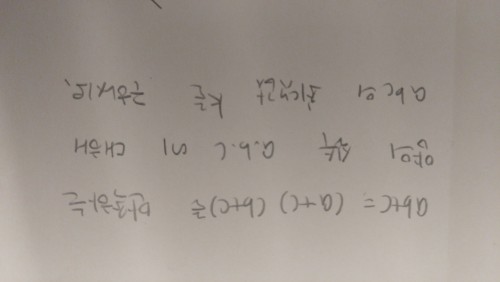 ab+c = (a+c) (b+c)를 만족하는
양의 실수 a.b.c 에 대해
abc의 최댓값 K를 구하시오.